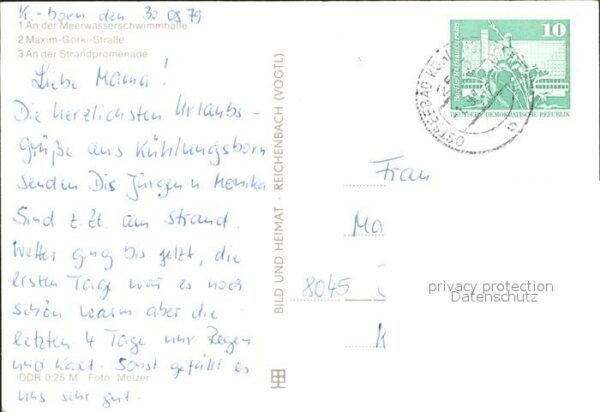 K.-born den 30 08 79
1 An der Meerwasserschwimmhalle
2 Maxim-Gorki-Straße
3 An der Strandpromenade
Liebe Mama!
Die herzlichsten Urlaubs-
grüße aus Kühlungsborn
senden Dir Jürgen u Monika
Sind z. Zt. am Strand.
Wetter ging bis jetzt, die
ersten Tage war es noch
schön warm aber die
letzten 4 Tage nur Regen
und Kalt. Sonst gefällt es
uns sehr gut.
DDR 0,25 M Foto: Melzer
BILD UND HEIMAT · REICHENBACH (VOGTL)
10
DEUTSCHE DEMOKRATISCHE REPUBLIK
OSTSEEBAD
Frau
Ma
8045
K
privacy protection
Datenschutz